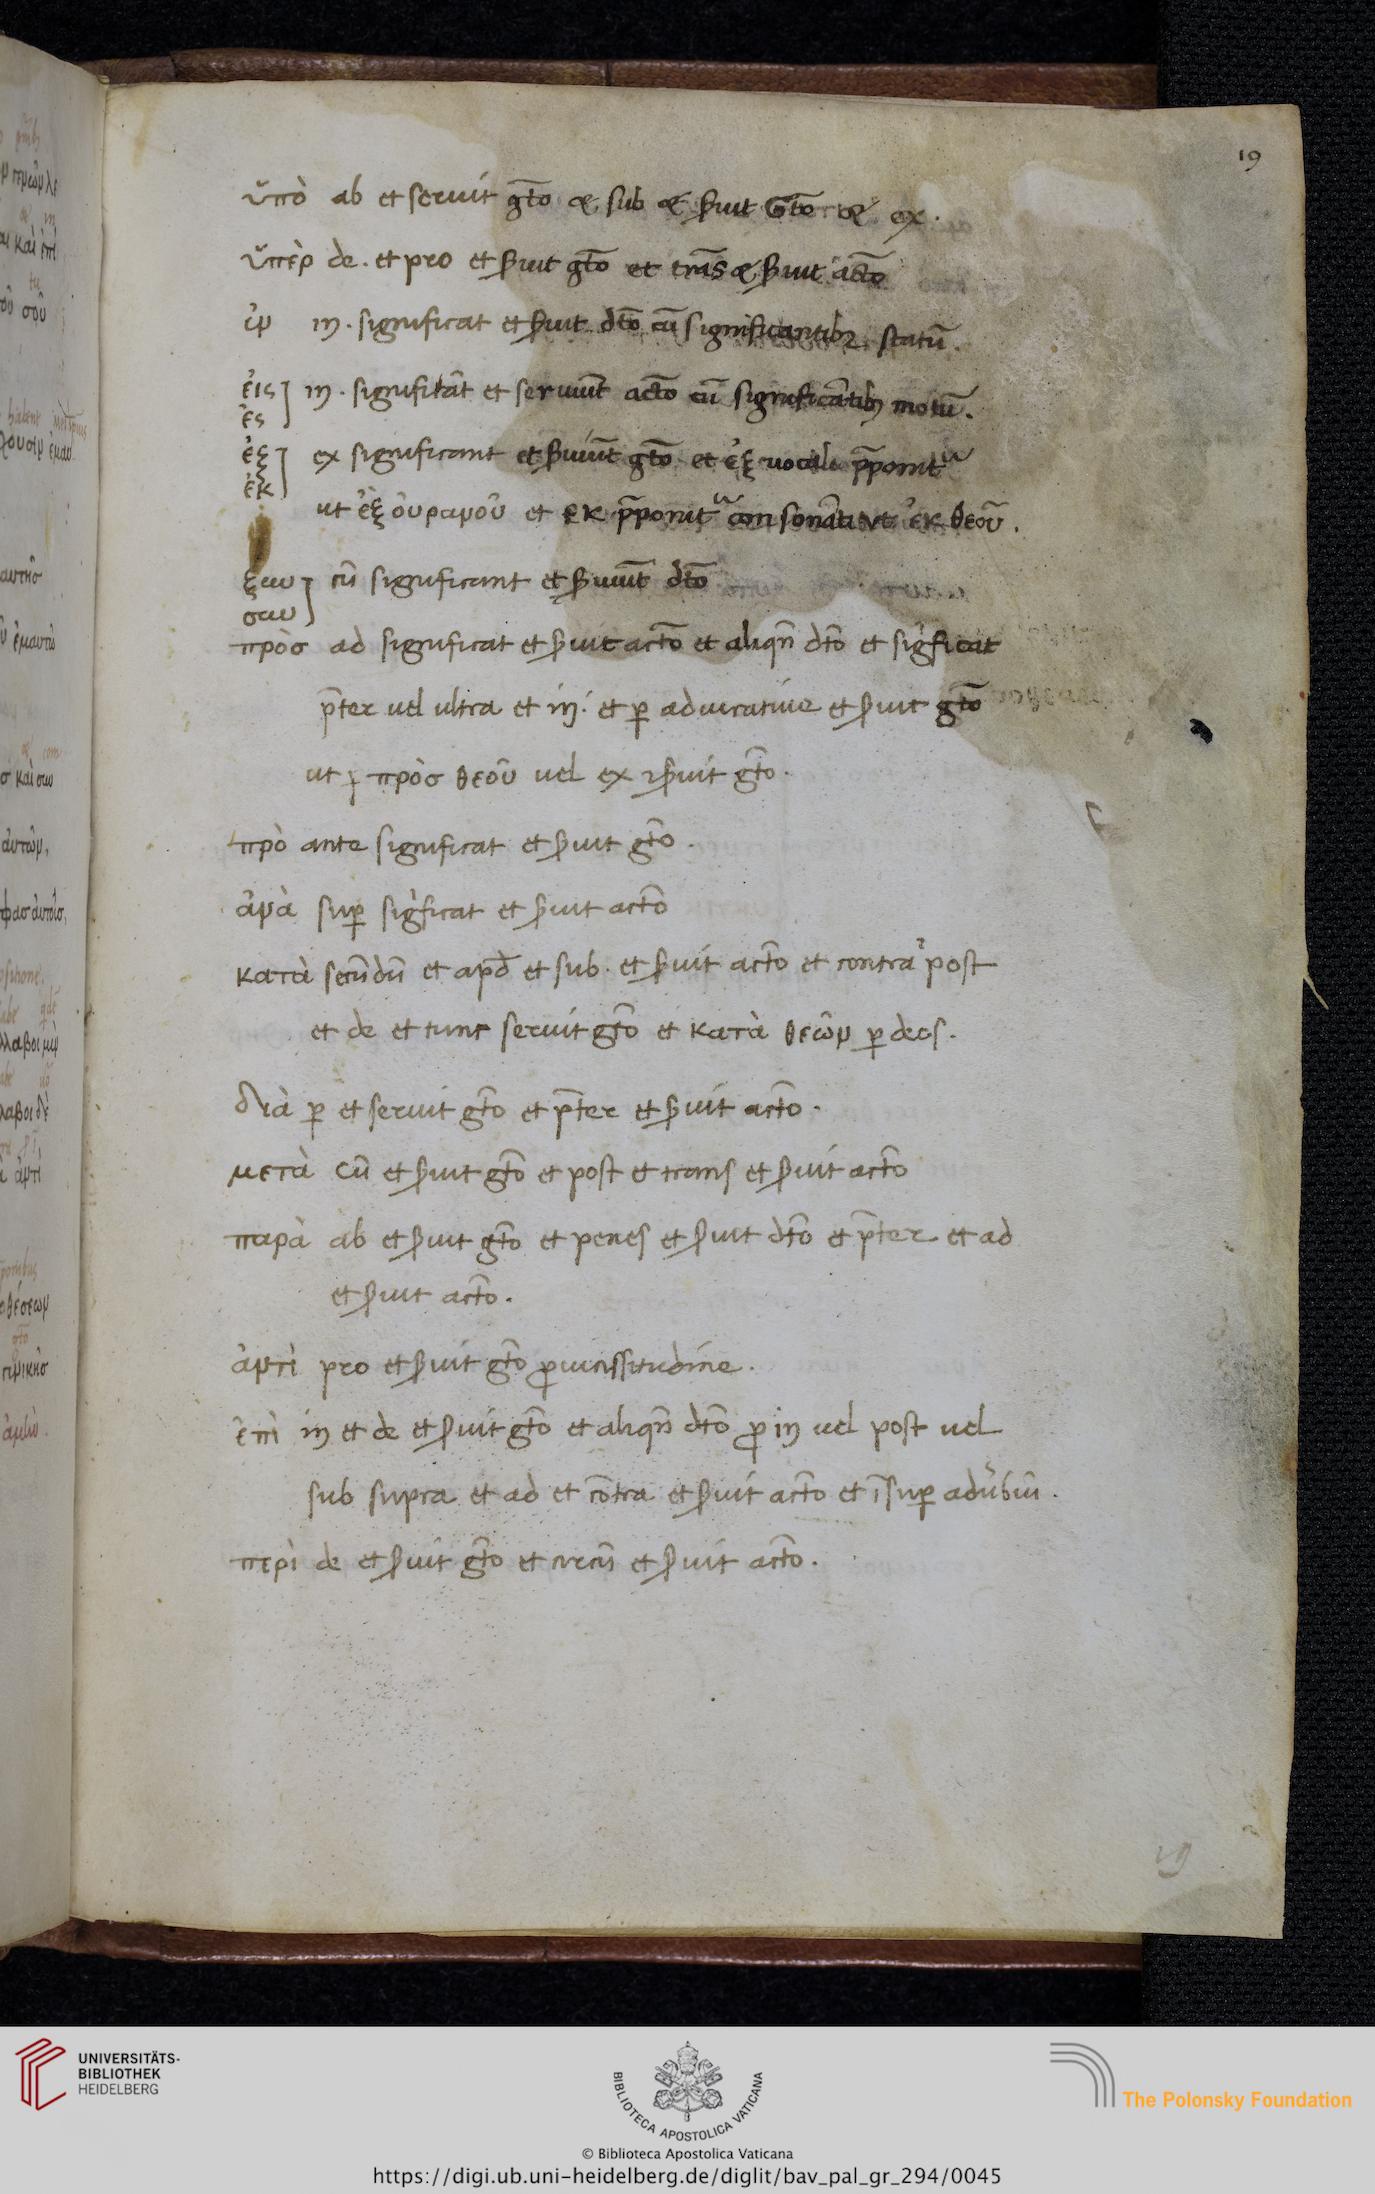 19
ὑπὸ ab et seruit gt̄o et sub et s̄uit Gt̄o et ex.
ὑπὲρ de. et pro et s̄uit gt̄o et trās et s̄uit act̄o
ἐν in. significat et s̄uit dt̄o cū significantibꝫ statū.
εἰς] in. significāt et seruiūt act̄o cū significātibꝫ motū.
ἐς
ἐξ] ex significant et s̄uiūt gt̄o et ἐξ uocali p̄ponit᷑
ἐκ
ut ἐξ οὐρανοῦ et εκ p̄ponit᷑ consonāti ut ἐκ θεοῦ.
ξὺν] cū significant et s̄uiūt dt̄o
σὺν
πρὸσ ad significat et s̄uit act̄o et aliqn̄ dt̄o et sigͥficat
p̄ter uel ultra et in. et ꝑ adiuratiue et s̄uit gt̄o
ut πρὸσ θεοῦ uel ex s̄uit gt̄o.
πρὸ ante significat et s̄uit gt̄o.
ἀνὰ suꝑ sigͥficat et s̄uit act̄o
κατὰ secūdū et apd̄ et sub. et s̄uit act̄o et contra post
et de et tunc seruit gt̄o et κατὰ θεῶν ꝑ deos.
διὰ ꝑ et seruit gt̄o et p̄ter et s̄uit act̄o.
μετὰ cū et s̄uit gt̄o et post et trans et s̄uit act̄o
παρὰ ab et s̄uit gt̄o et penes et s̄uit dt̄o et p̄ter et ad
et s̄uit act̄o.
ἀντὶ pro et s̄uit gt̄o ꝓ uicissitudine.
ἐπὶ in et de et s̄uit gt̄o et aliqn̄ dt̄o ꝓ in uel post uel
sub supra et ad et cōtra et s̄uit act̄o et īsuꝑ aduͬbiū.
περὶ de et s̄uit gt̄o et circū et s̄uit act̄o.
19
UNIVERSITÄTS-
BIBLIOTHEK
HEIDELBERG
BIBLIOTECA APOSTOLICA VATICANA
The Polonsky Foundation
© Biblioteca Apostolica Vaticana
https://digi.ub.uni-heidelberg.de/diglit/bav_pal_gr_294/0045